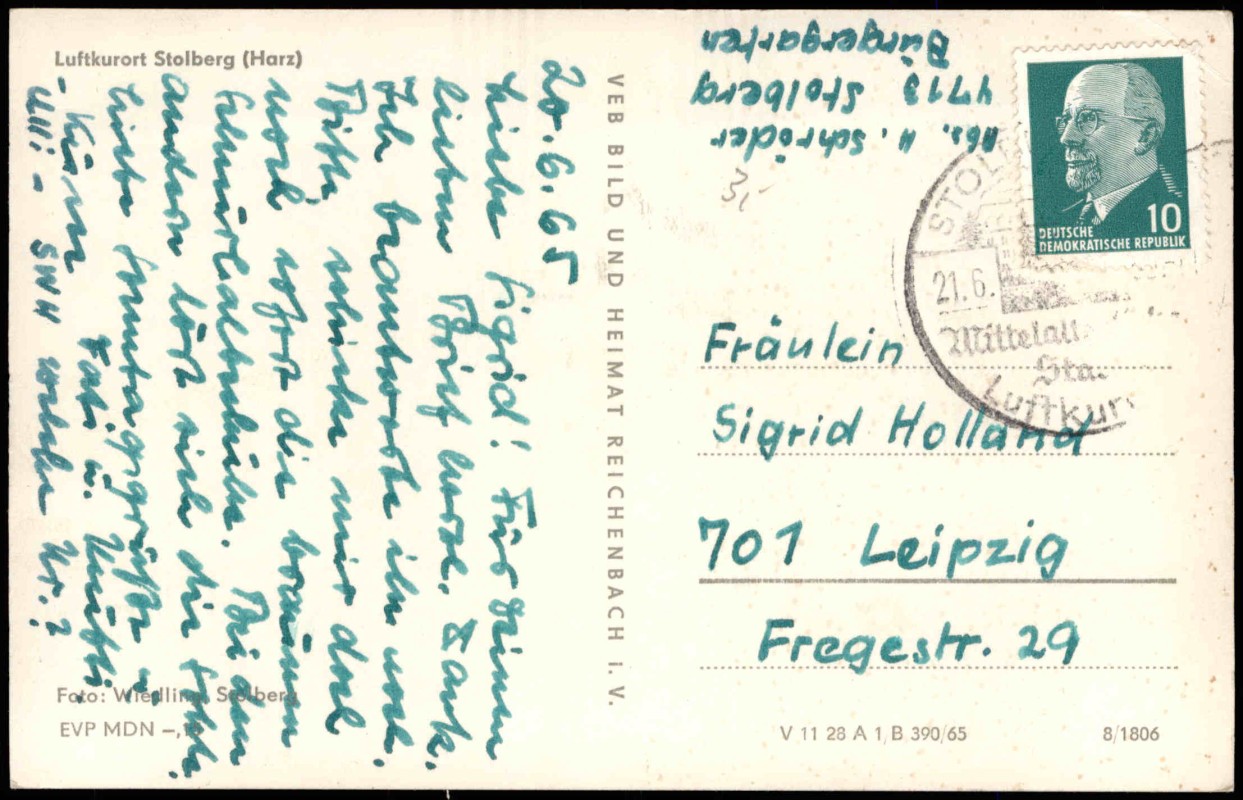 Luftkurort Stolberg (Harz)
20.6.65
Liebe Sigrid! Für Deinen
lieben Brief herzl. Dank.
Ich beantworte ihn noch.
Bitte, schicke mir doch
noch sofort die braunen
Schnürhalbschuhe. Bei den
andern löst sich die Sohle.
Liebe Sonntagsgrüße u.
Küsse Vati u. Mutti.
- Ulli - SWH welche Nr.?
Foto: Wiedling, Stolberg
EVP MDN –,
VEB BILD UND HEIMAT REICHENBACH i. V.
Abs. H. Schröder
4713 Stolberg
Bürgergarten
3,-
DEUTSCHE
DEMOKRATISCHE REPUBLIK
10
STOL
21.6.
Mittelalt
Sta
Luftkur
Fräulein
Sigrid Holland
701 Leipzig
Fregestr. 29
V 11 28 A 1 B 390/65
8/1806